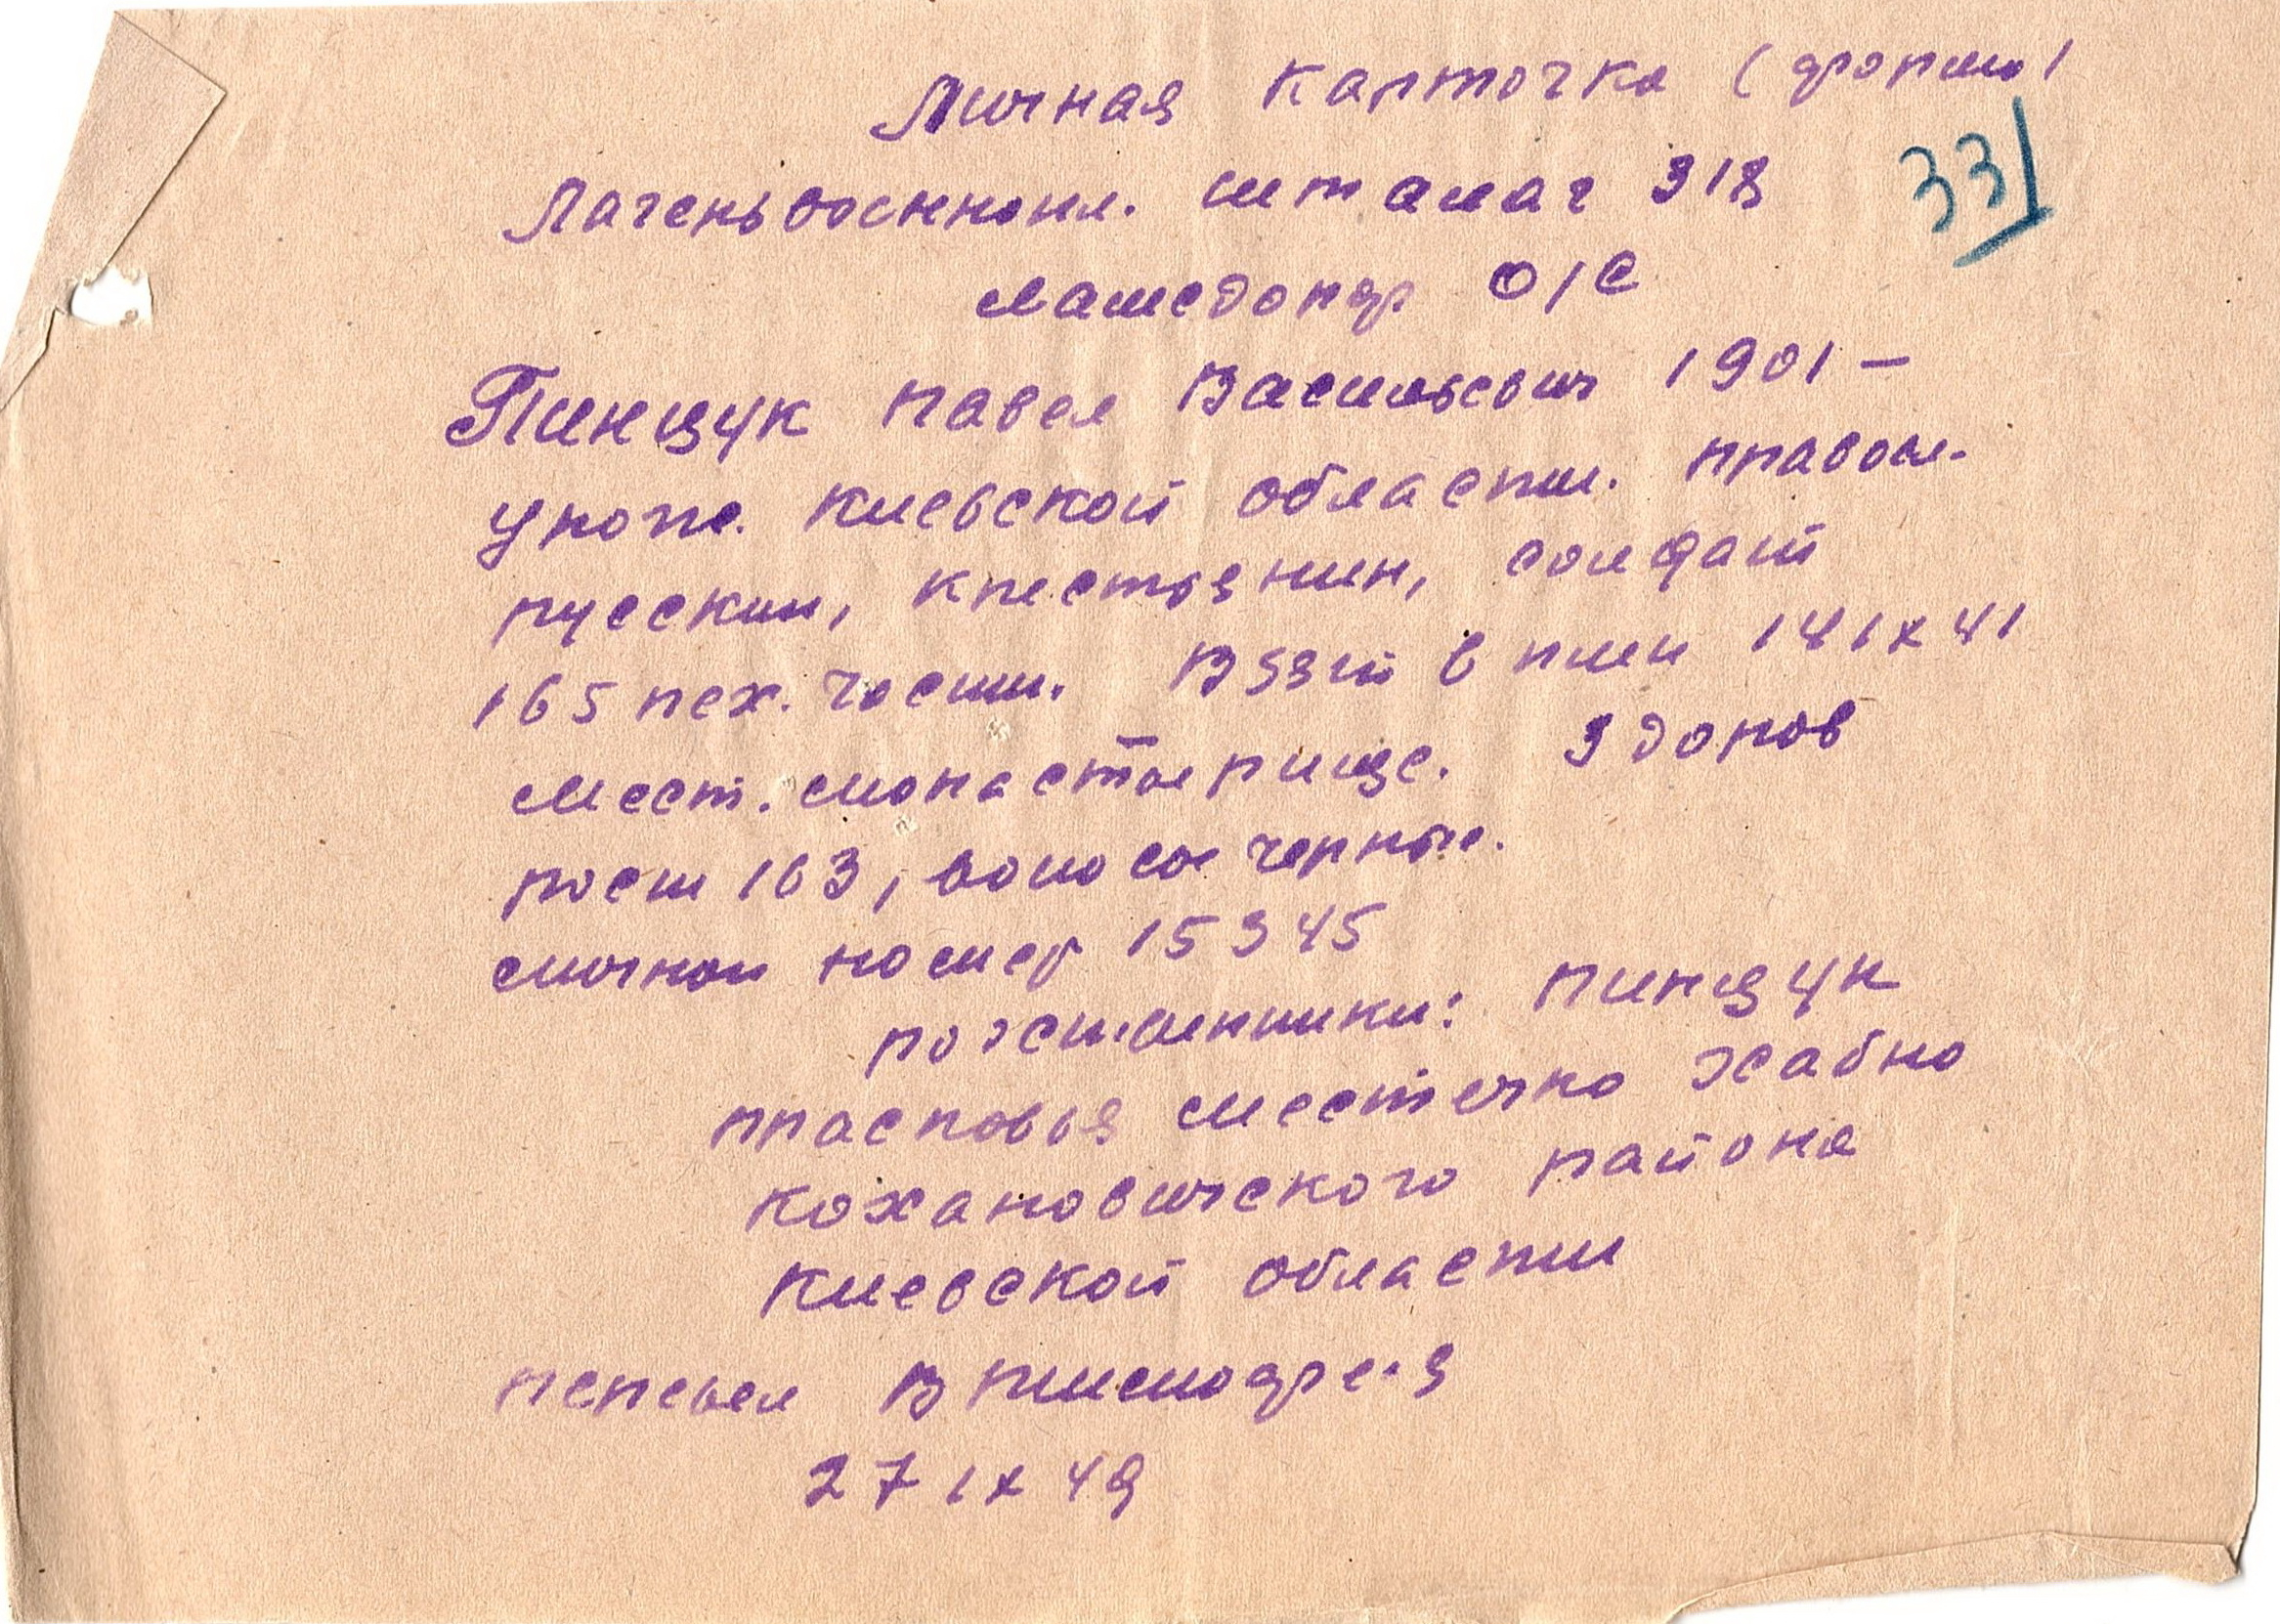 Личная карточка (
331
Лагерь военнопл. шталаг 318
Ламсдорф О/С
Пинщук Павел Васильевич 1901 –
Киевской области. правосл.
русский, крестьянин, солдат
165 пех. части. Взят в плен 14 IX 41
мест. монастырище. Здоров
рост 163, волосы черные.
личной номер 15345
родственники: Пинщук
прасковья местечко Хабно
Кохановичского района
Киевской области
перевел
27 IX 49